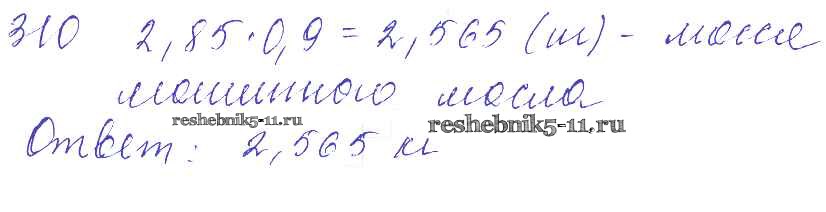 310 2,85·0,9 = 2,565 (т) - масса
машинного масла
reshebnik5-11.ru
reshebnik5-11.ru
Ответ: 2,565 т